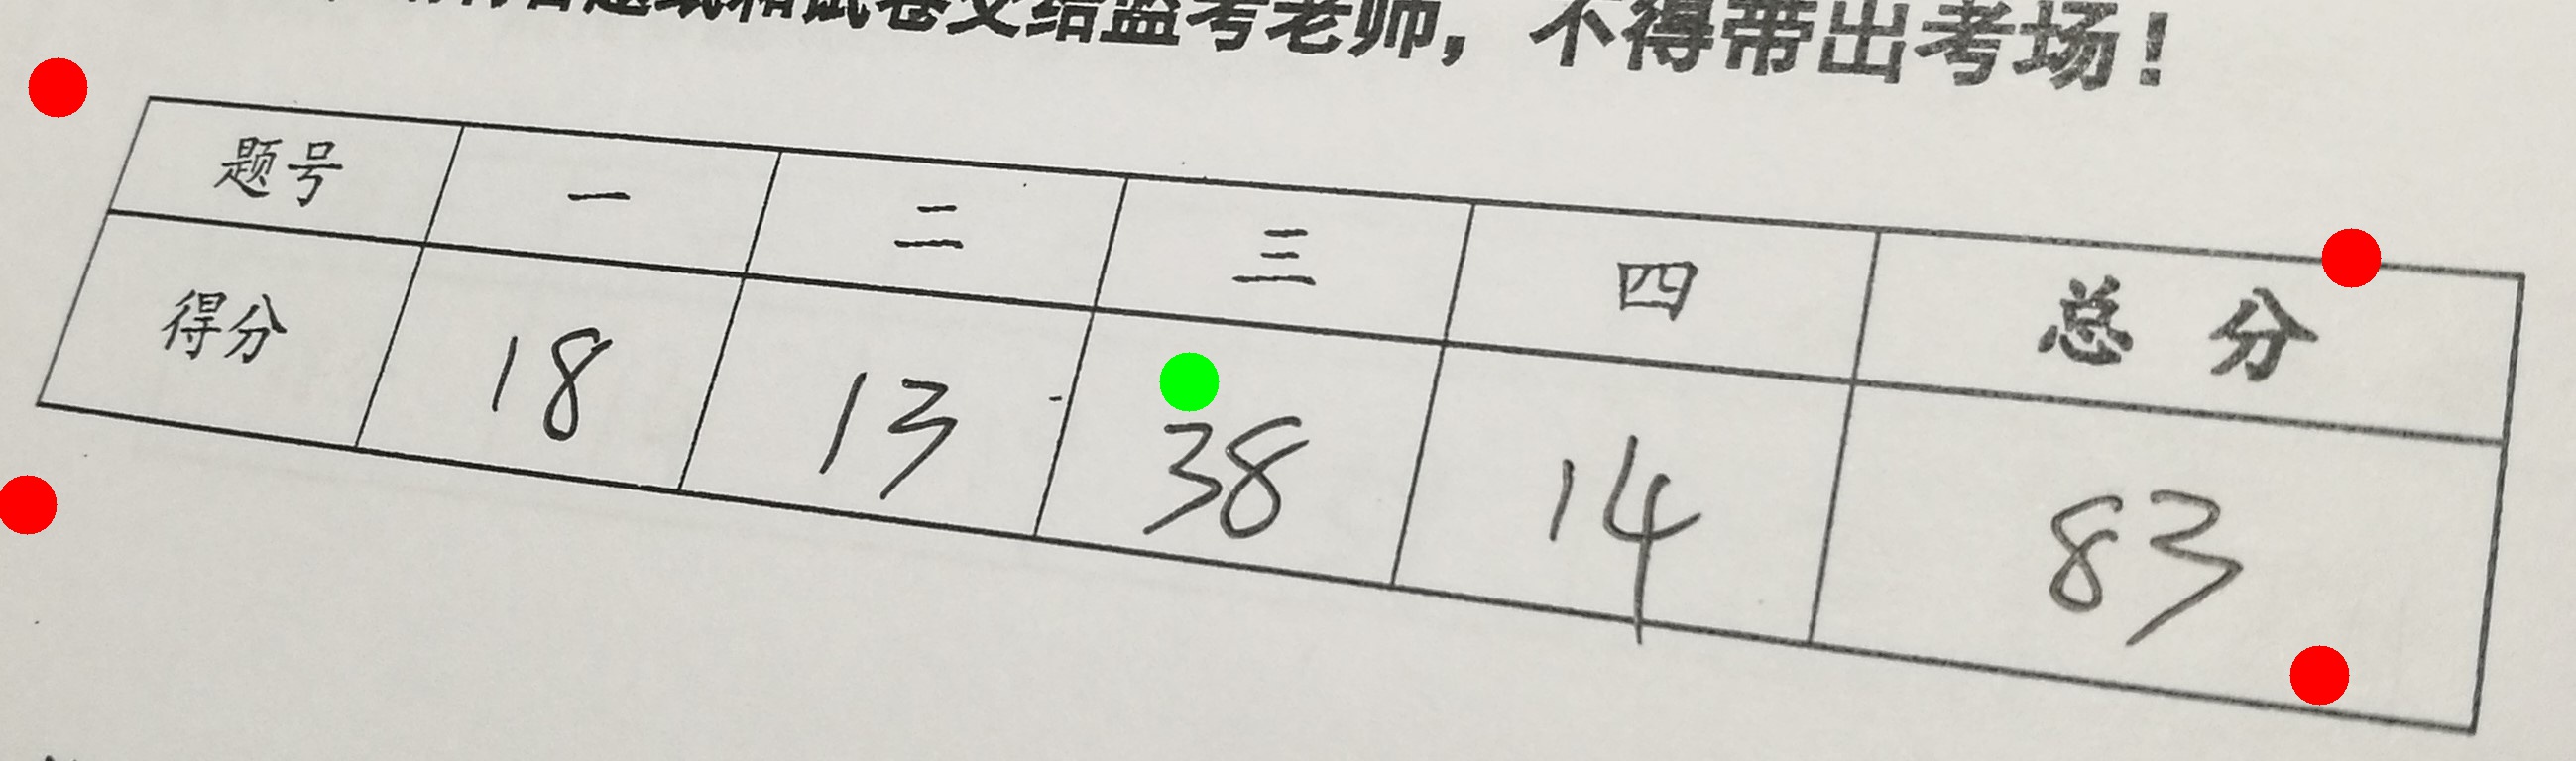 和试卷交给监考老师，不得带出考场！
题号 一 二 三 四 总分
得分 18 13 38 14 83